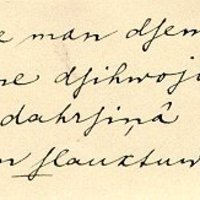 e man dſem
ne dſihwoj
dahrſiņâ
n ſlauktuw